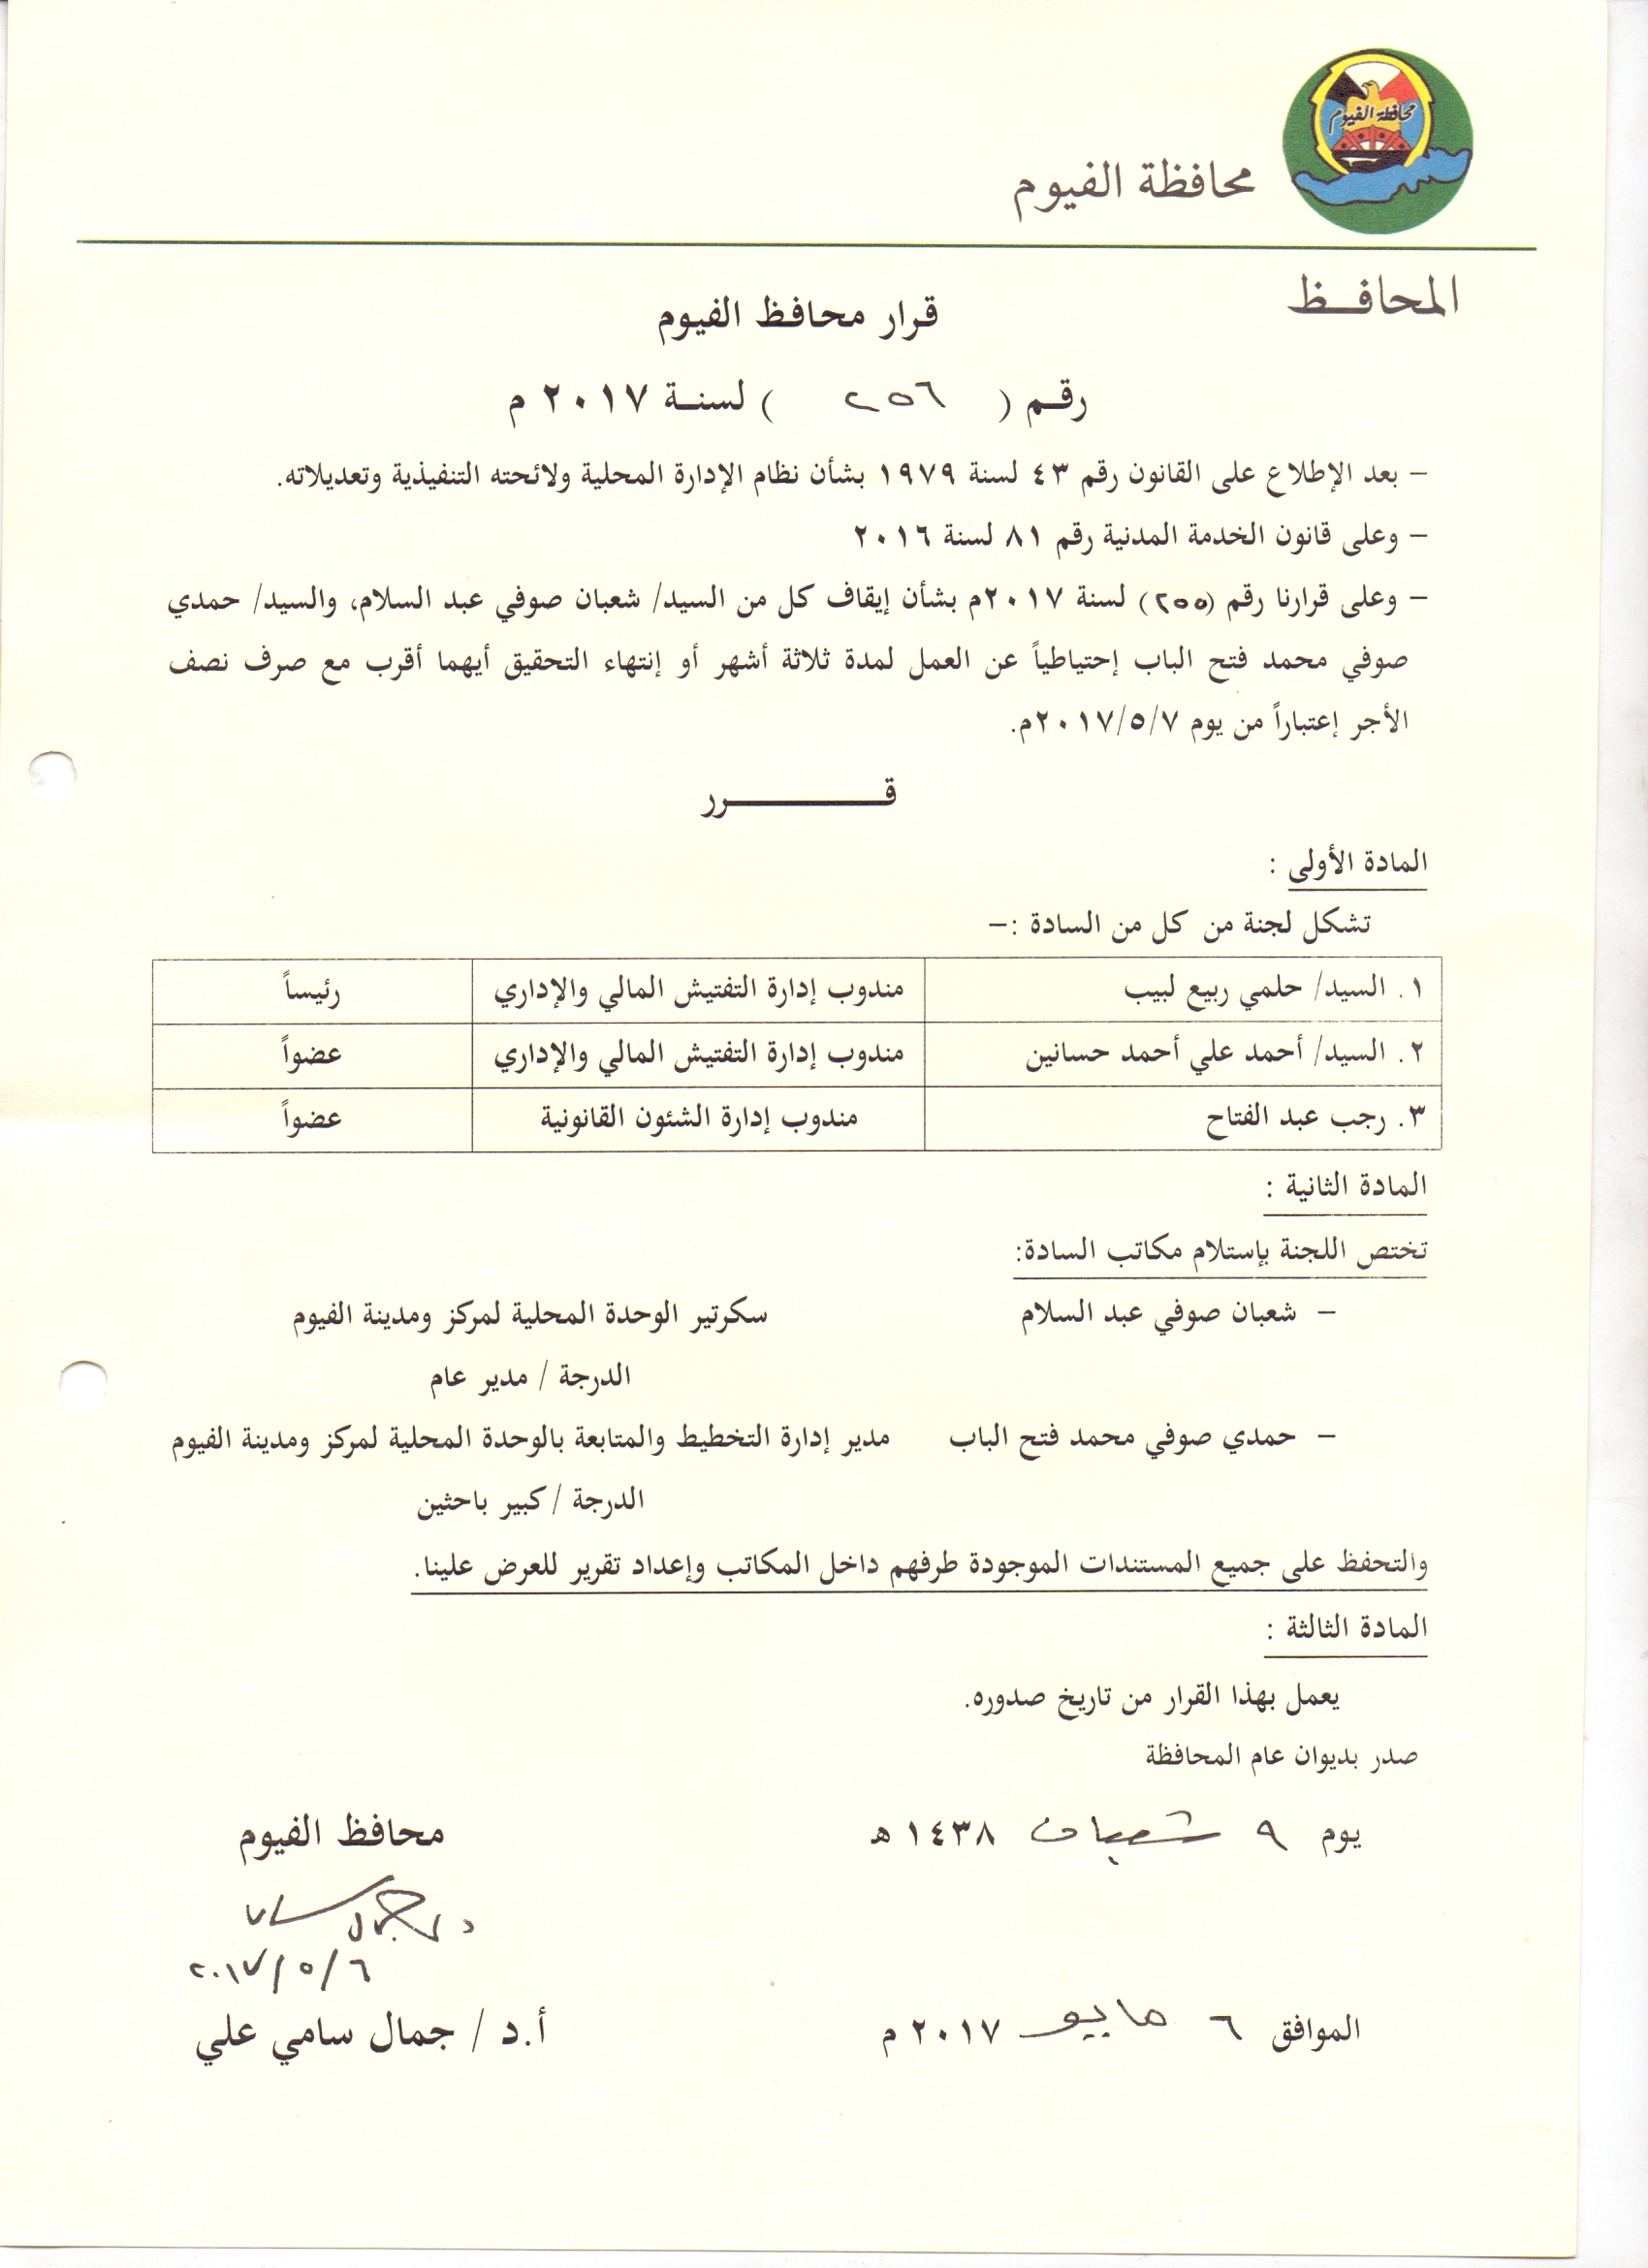 محافظة الفيوم
محافظة الفيوم
المحافـــظ
قرار محافظ الفيوم
رقـم ( ٢٥٦ ) لسنـة ٢٠١٧ م
– بعد الإطلاع على القانون رقم ٤٣ لسنة ١٩٧٩ بشأن نظام الإدارة المحلية ولائحته التنفيذية وتعديلاته.
– وعلى قانون الخدمة المدنية رقم ٨١ لسنة ٢٠١٦
– وعلى قرارنا رقم (٢٥٥) لسنة ٢٠١٧م بشأن إيقاف كل من السيد/ شعبان صوفي عبد السلام، والسيد/ حمدي
صوفي محمد فتح الباب إحتياطياً عن العمل لمدة ثلاثة أشهر أو إنتهاء التحقيق أيهما أقرب مع صرف نصف
الأجر إعتباراً من يوم ٢٠١٧/٥/٧م.
قـــــــــرر
المادة الأولى :
تشكل لجنة من كل من السادة :–
١. السيد/ حلمي ربيع لبيب مندوب إدارة التفتيش المالي والإداري رئيساً
٢. السيد/ أحمد علي أحمد حسانين مندوب إدارة التفتيش المالي والإداري عضواً
٣. رجب عبد الفتاح مندوب إدارة الشئون القانونية عضواً
المادة الثانية :
تختص اللجنة بإستلام مكاتب السادة:
– شعبان صوفي عبد السلام سكرتير الوحدة المحلية لمركز ومدينة الفيوم
الدرجة / مدير عام
– حمدي صوفي محمد فتح الباب مدير إدارة التخطيط والمتابعة بالوحدة المحلية لمركز ومدينة الفيوم
الدرجة / كبير باحثين
والتحفظ على جميع المستندات الموجودة طرفهم داخل المكاتب وإعداد تقرير للعرض علينا.
المادة الثالثة :
يعمل بهذا القرار من تاريخ صدوره.
صدر بديوان عام المحافظة
يوم ٩ شعبان ١٤٣٨ هـ
محافظ الفيوم
د. جمال سامي
٢٠١٧/٥/٦
الموافق ٦ مايو ٢٠١٧ م
أ.د / جمال سامي علي